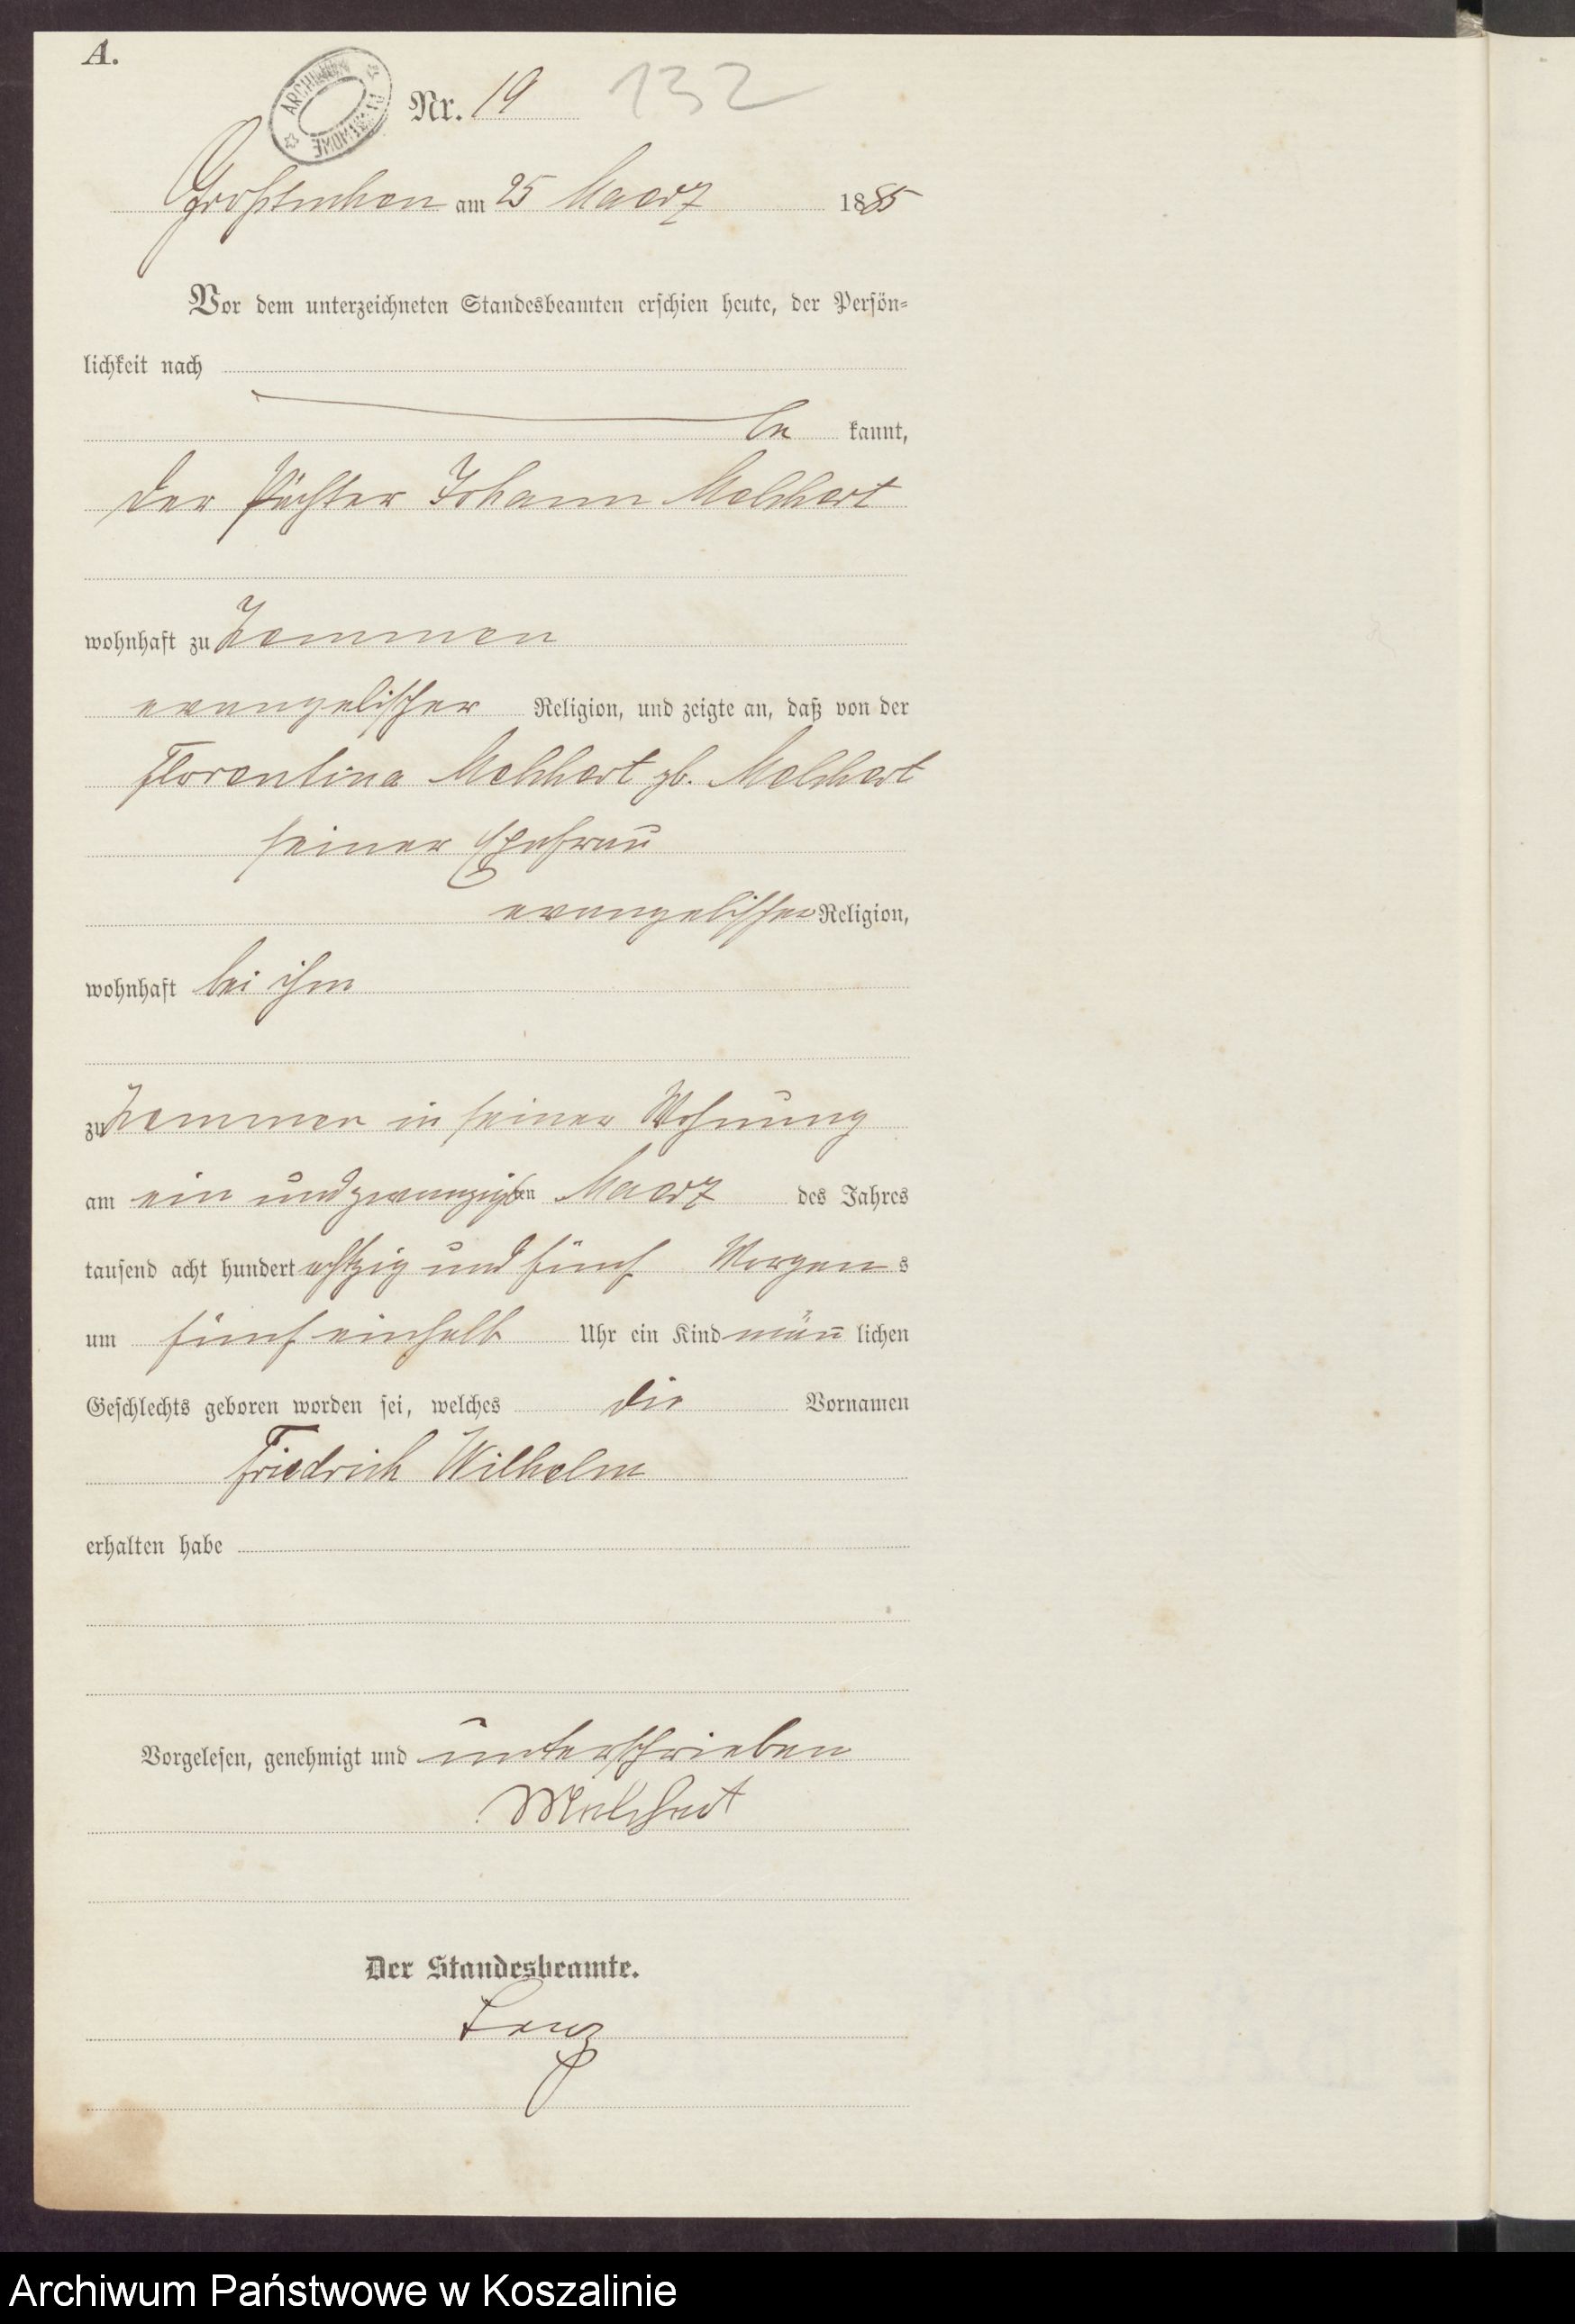 A.
ARCHIWUM PAŃSTWOWE
Nr. 19 132
Großtuchen am 25 Maerz 1885
Vor dem unterzeichneten Standesbeamten erschien heute, der Persön=
lichkeit nach
be kannt,
der Pächter Johann Melchert
wohnhaft zu Zemmen
evangelischer Religion, und zeigte an, daß von der
Florentina Melchert gb. Melchert
seiner Ehefrau
evangelischer Religion,
wohnhaft bei ihm
zu Zemmen in seiner Wohnung
am ein und zwanzigsten Maerz des Jahres
tausend acht hundert achtzig und fünf Morgens
um fünf einhalb Uhr ein Kind männlichen
Geschlechts geboren worden sei, welches die Vornamen
Friedrich Wilhelm
erhalten habe
Vorgelesen, genehmigt und unterschrieben
Melchert
Der Standesbeamte.
Archiwum Państwowe w Koszalinie